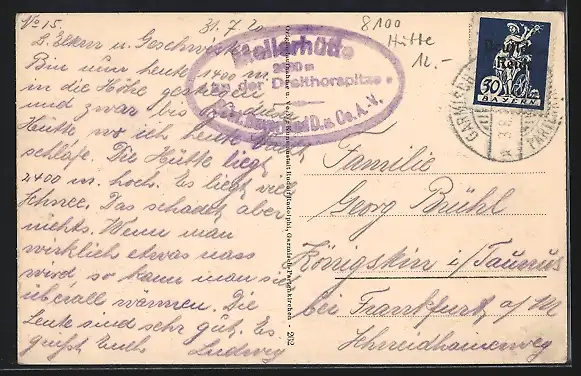 No 15.
31.7.20
L. Eltern u. Geschwister
Bin nun heute 1400 m
in die Höhe gestiegen
und zwar bis
Hütte wo ich heute
schlafe. Die Hütte liegt
2400 m. hoch. Es liegt viel
Schnee. Das schadet aber
nichts. Wenn man
wirklich etwas nass
wird, so kann man sich
überall wärmen. Die
Leute sind sehr gut. Es
grüßt Euch Ludwig
Meilerhütte
an der Dreithorspitze
D. u. Oe. A.-V.
8100
Hütte
12.-
Deutsches
Reich
30
BAYERN
GARMISCH
Rudolf Rudolphi, Garmisch-Partenkirchen - 202
Familie
Georg Brühl
Königstein i/Taunus
bei Frankfurt a/M
Schneidhainerweg